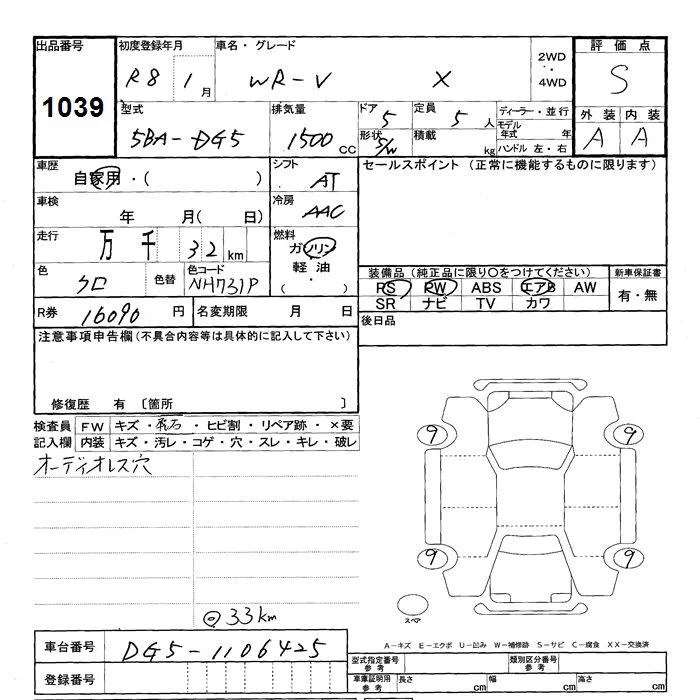 出品番号 初度登録年月 車名・グレード 2WD ・・ 4WD 評価点
1039 R8 1月 WR-V X S
型式 排気量 ドア 定員 ディーラー・並行 外装 内装
5BA-DG5 1500cc 5 5人 モデル年式 年 A A
形状 S/W 積載 kg ハンドル 左・右
車歴 シフト セールスポイント (正常に機能するものに限ります)
自家用・( ) AT
車検 冷房
年 月( 日) AAC
走行 燃料
万 千 32km ガソリン
軽油
( ・ )
色 色替 色コード 装備品 (純正品に限り○をつけてください) 新車保証書
クロ NH731P RS PW ABS エアB AW 有・無
SR ナビ TV カワ
R券 16090円 名変期限 月 日 後日品
注意事項申告欄 (不具合内容等は具体的に記入して下さい)
修復歴 有 〔箇所 〕
検査員 FW キズ・飛石・ヒビ割・リペア跡・×要
記入欄 内装 キズ・汚レ・コゲ・穴・スレ・キレ・破レ
オーディオレス穴
9 9
9 9
スペア
@33km
A-キズ E-エクボ U-凹み W-補修跡 S-サビ C-腐食 XX-交換済
車台番号 DG5-1106425
型式指定番号 参考 類別区分番号 参考
登録番号
車庫証明用 参考 長さ cm 幅 cm 高さ cm